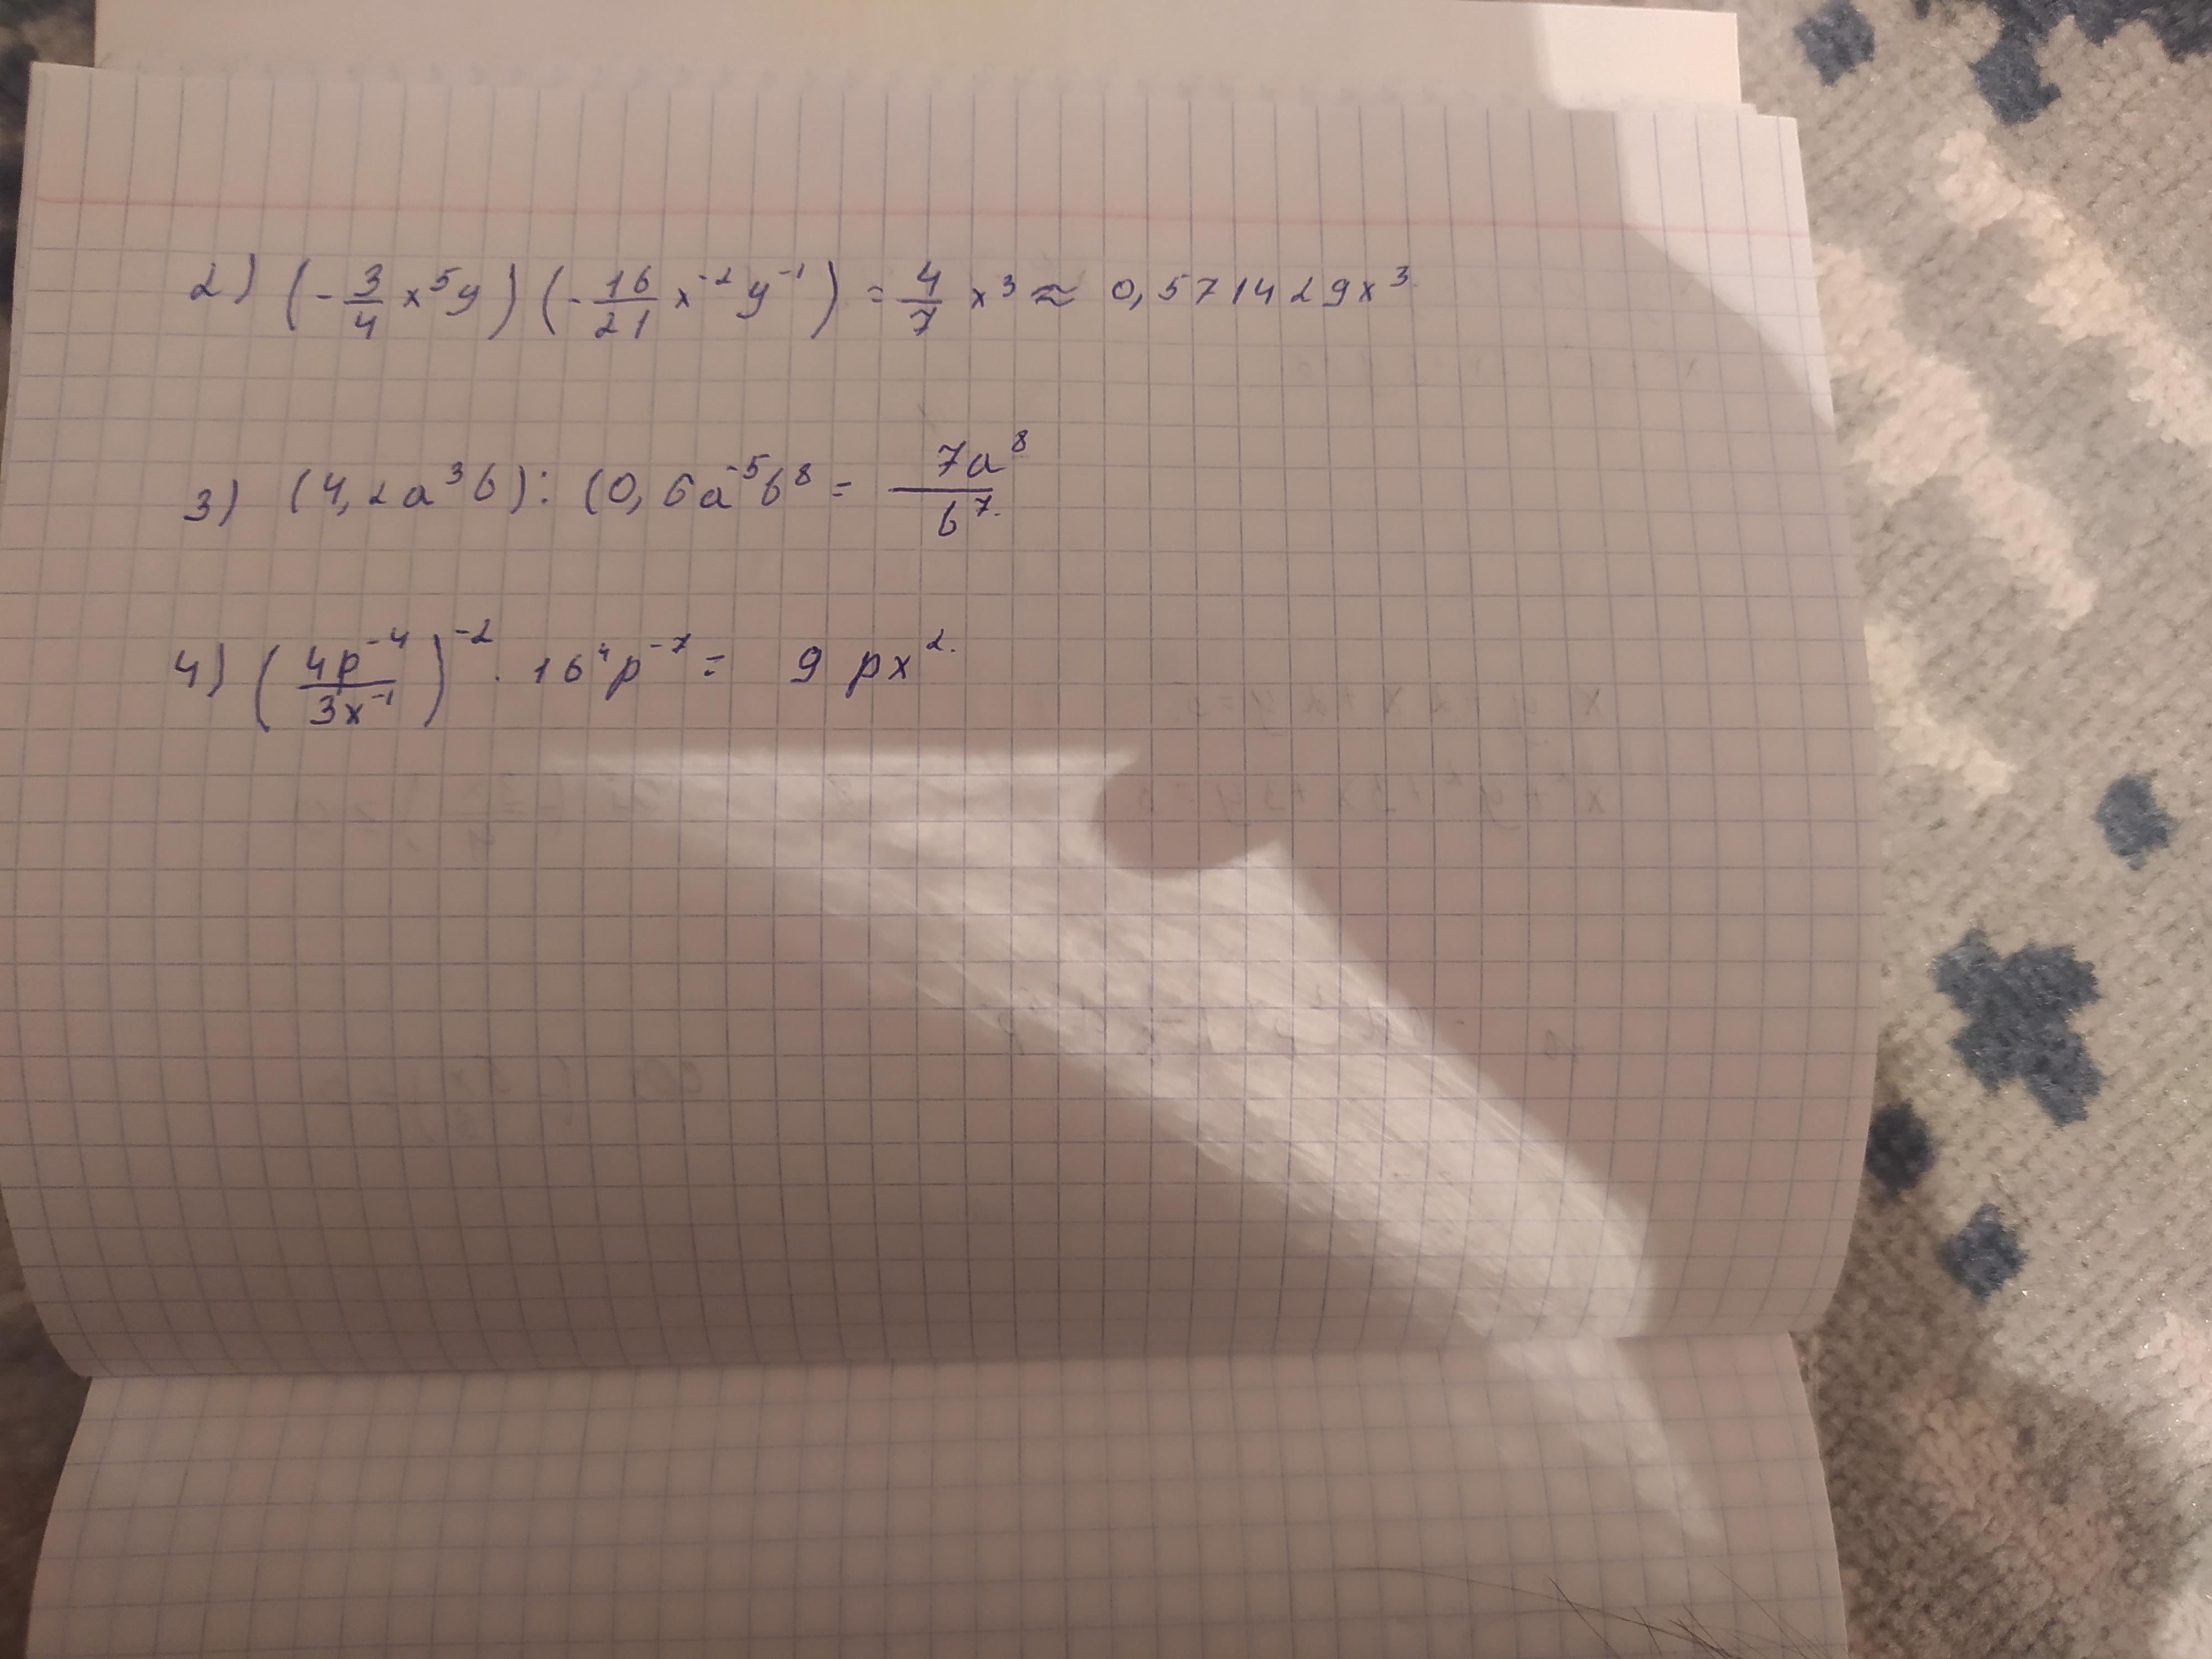 2) (-3/4 x⁵y) (-16/21 x⁻²y⁻¹) = 4/7 x³ ≈ 0,571429x³
3) (4,2a³b) : (0,6a⁻⁵b⁸ = 7a⁸/b⁷.
4) (4p⁻⁴/3x⁻¹)⁻² · 16⁴p⁻⁷ = 9px².